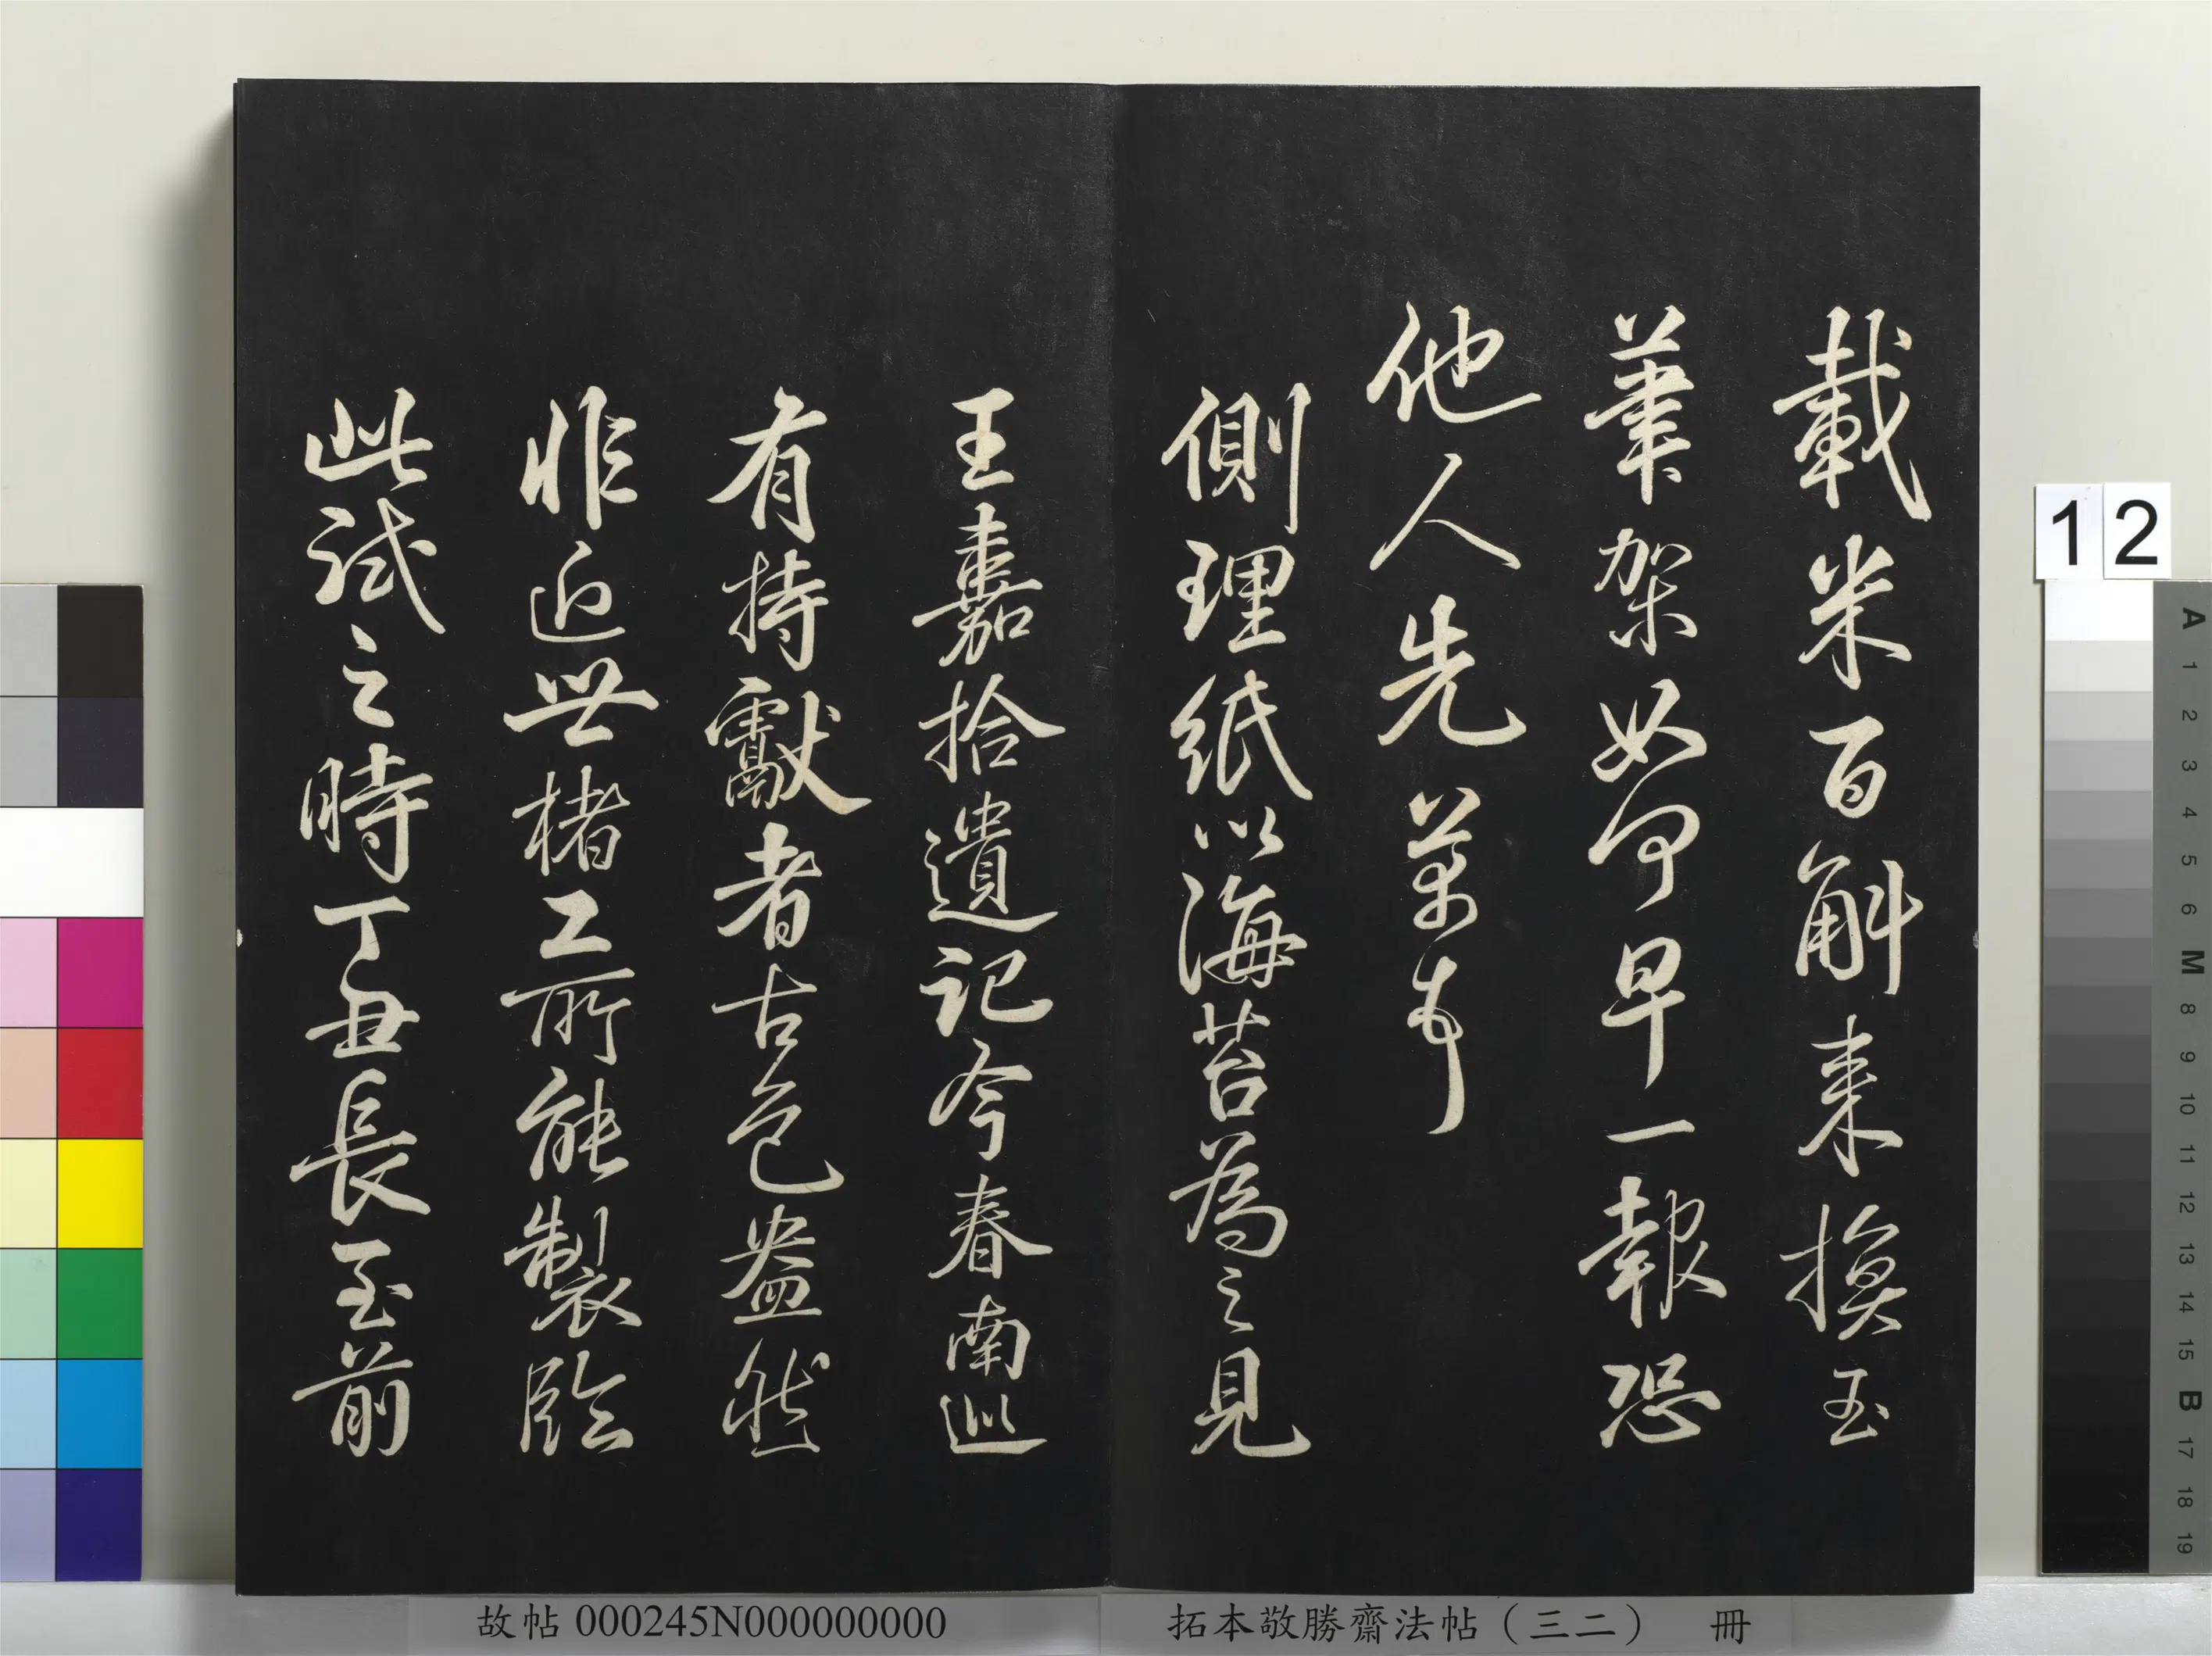 載米百斛来換玉
筆架如何早一報恐
他人先芾
側理紙以海苔為之見
王嘉拾遺記今春南巡
有持獻者古色盎然
非近世楮工所能製臨
此試之時丁丑長至前
12
A 1 2 3 4 5 6 M 8 9 10 11 12 13 14 15 B 17 18 19
故帖 000245N000000000
拓本敬勝齋法帖（三二） 冊